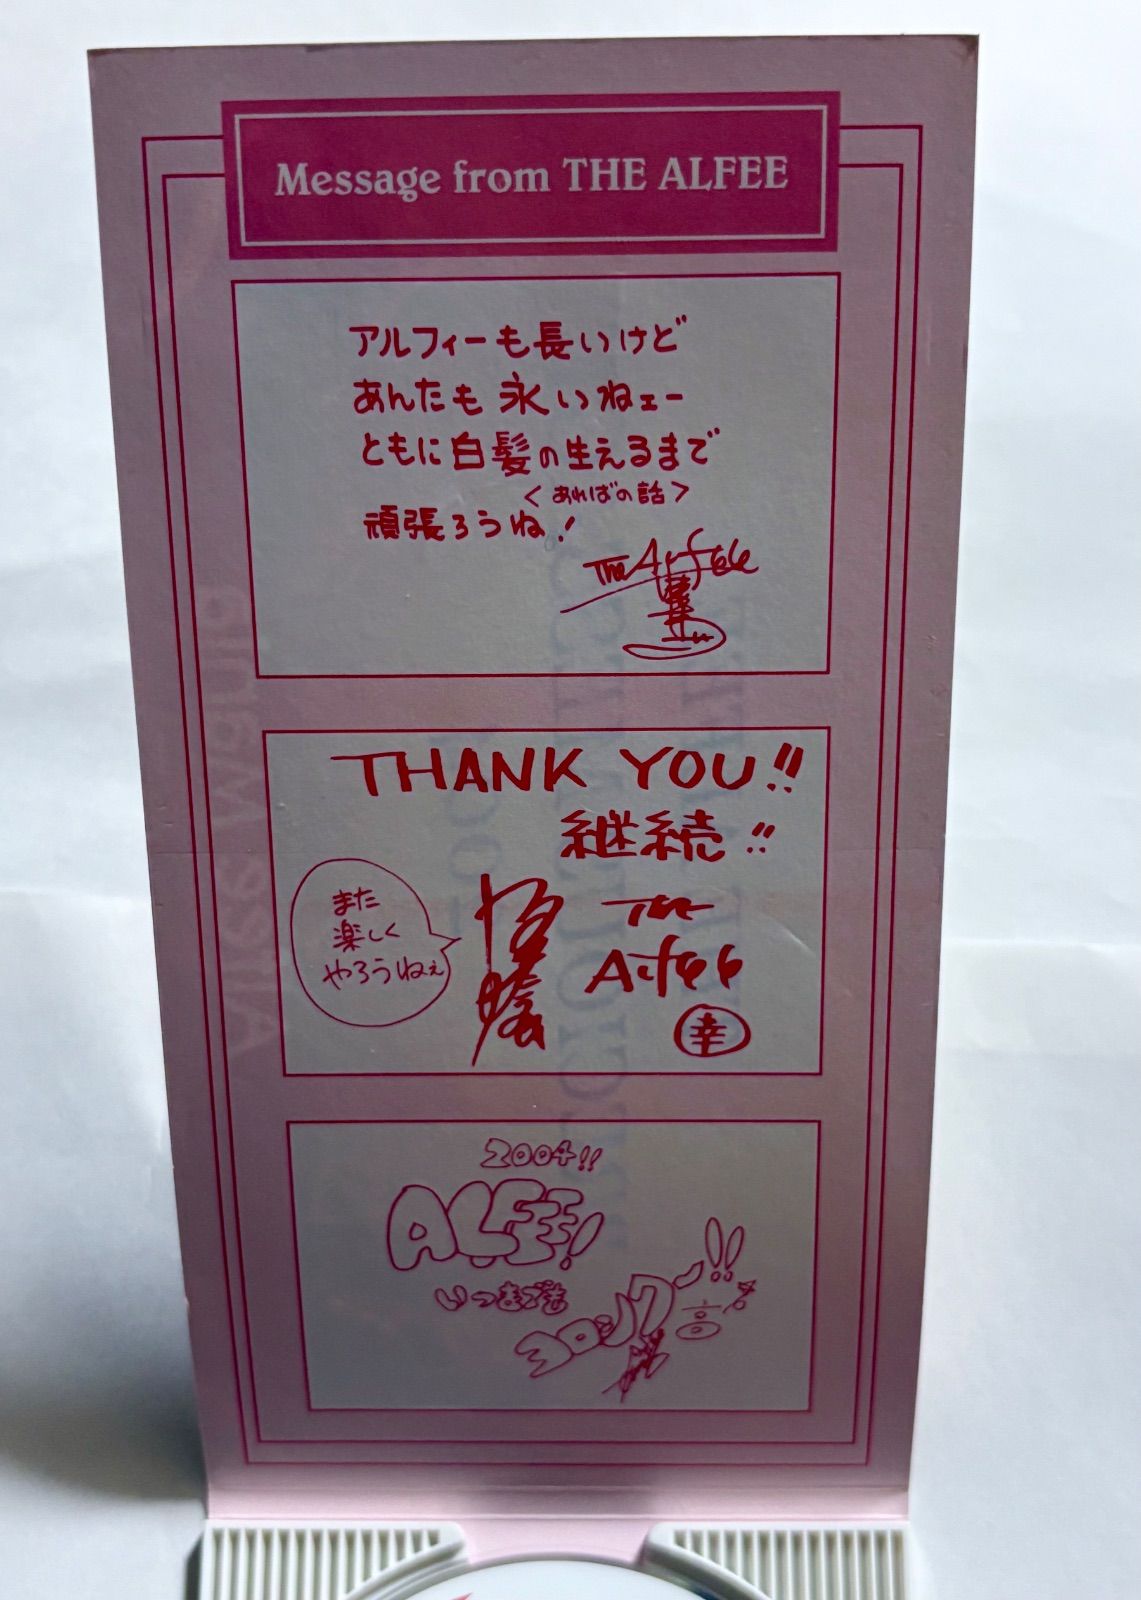 Message from THE ALFEE
アルフィーも長いけど
あんたも永いねェー
ともに白髪の生えるまで
<あればの話>
頑張ろうね!
The Alfee
THANK YOU!!
継続!!
また
楽しく
やろうねぇ
The
Alfee
幸
2004!!
ALFEE!
いつまでも
ヨロシクー!!
高